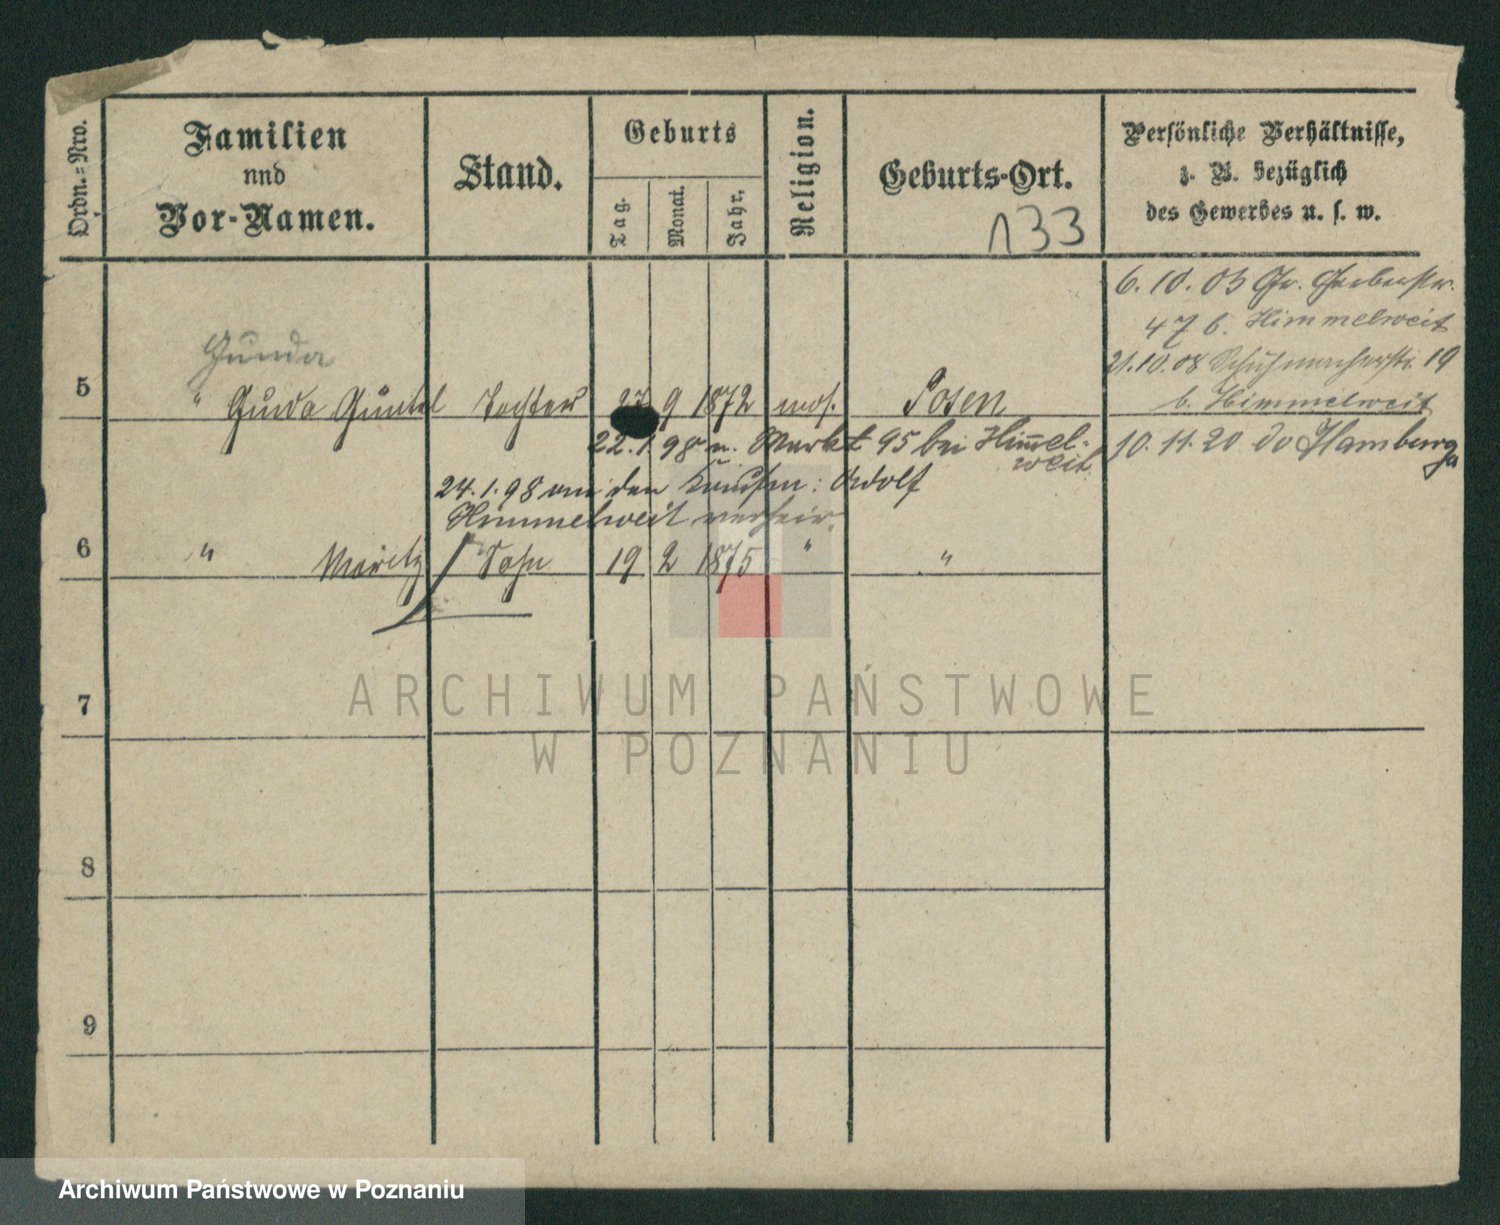 Ordn.=Nro.
Familien
und
Vor-Namen.
Stand.
Geburts
Tag.
Monat.
Jahr.
Religion.
Geburts-Ort.
133
Persönliche Verhältnisse,
z. B. bezüglich
des Gewerbes u. s. w.
6. 10. 03 Gr. Gerberstr.
47 b. Himmelweit
21.10.08 Schuhmacherstr. 19
b. Himmelweit
Gunda
5 " Tochter 27 9 1872 mos. Posen
22.1.98 n. Markt 95 bei Himmel-
weit
10. 11. 20 do Hamburg
24.1.98 an den Kaufm: Adolf
Himmelweit verheir.
6 " Moritz Sohn 19 2 1875 " "
7
8
9
ARCHIWUM PAŃSTWOWE
W POZNANIU
Archiwum Państwowe w Poznaniu